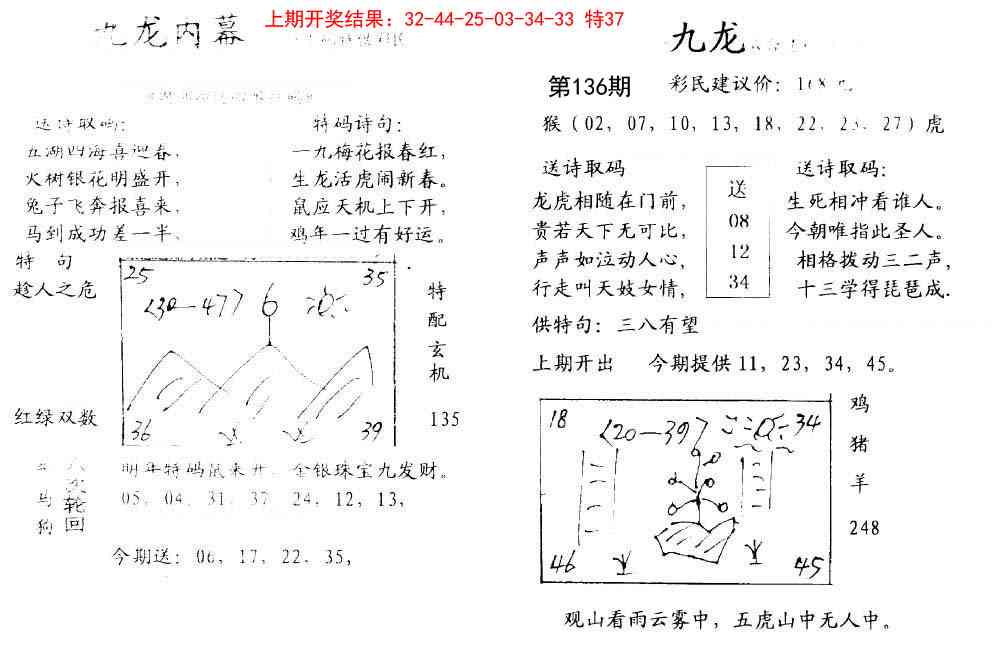 上期开奖结果：32-44-25-03-34-33 特37
九龙内幕
送诗取码：
五湖四海喜迎春，
火树银花明盛开，
兔子飞奔报喜来，
马到成功差一半、
特码诗句：
一九梅花报春红，
生龙活虎闹新春。
鼠应天机上下开，
鸡年一过有好运。
特 句
趁人之危
红绿双数
25
35
<30—47>
36
39
特
配
玄
机
135
明年特码鼠来开 金银珠宝九发财。
六
轮
回
马
狗
05，04，31，37 24，12，13，
今期送：06，17，22．35，
九龙
第136期
彩民建议价：
猴（02，07，10，13，18，22．23．27）虎
送诗取码
龙虎相随在门前，
贵若天下无可比，
声声如泣动人心，
行走叫天妓女情，
送
08
12
34
送诗取码：
生死相冲看谁人。
今朝唯指此圣人。
相格拨动三二声，
十三学得琵琶成．
供特句：三八有望
上期开出 今期提供11，23，34，45。
18
<20—39>
34
46
45
鸡
猪
羊
248
观山看雨云雾中，五虎山中无人中。